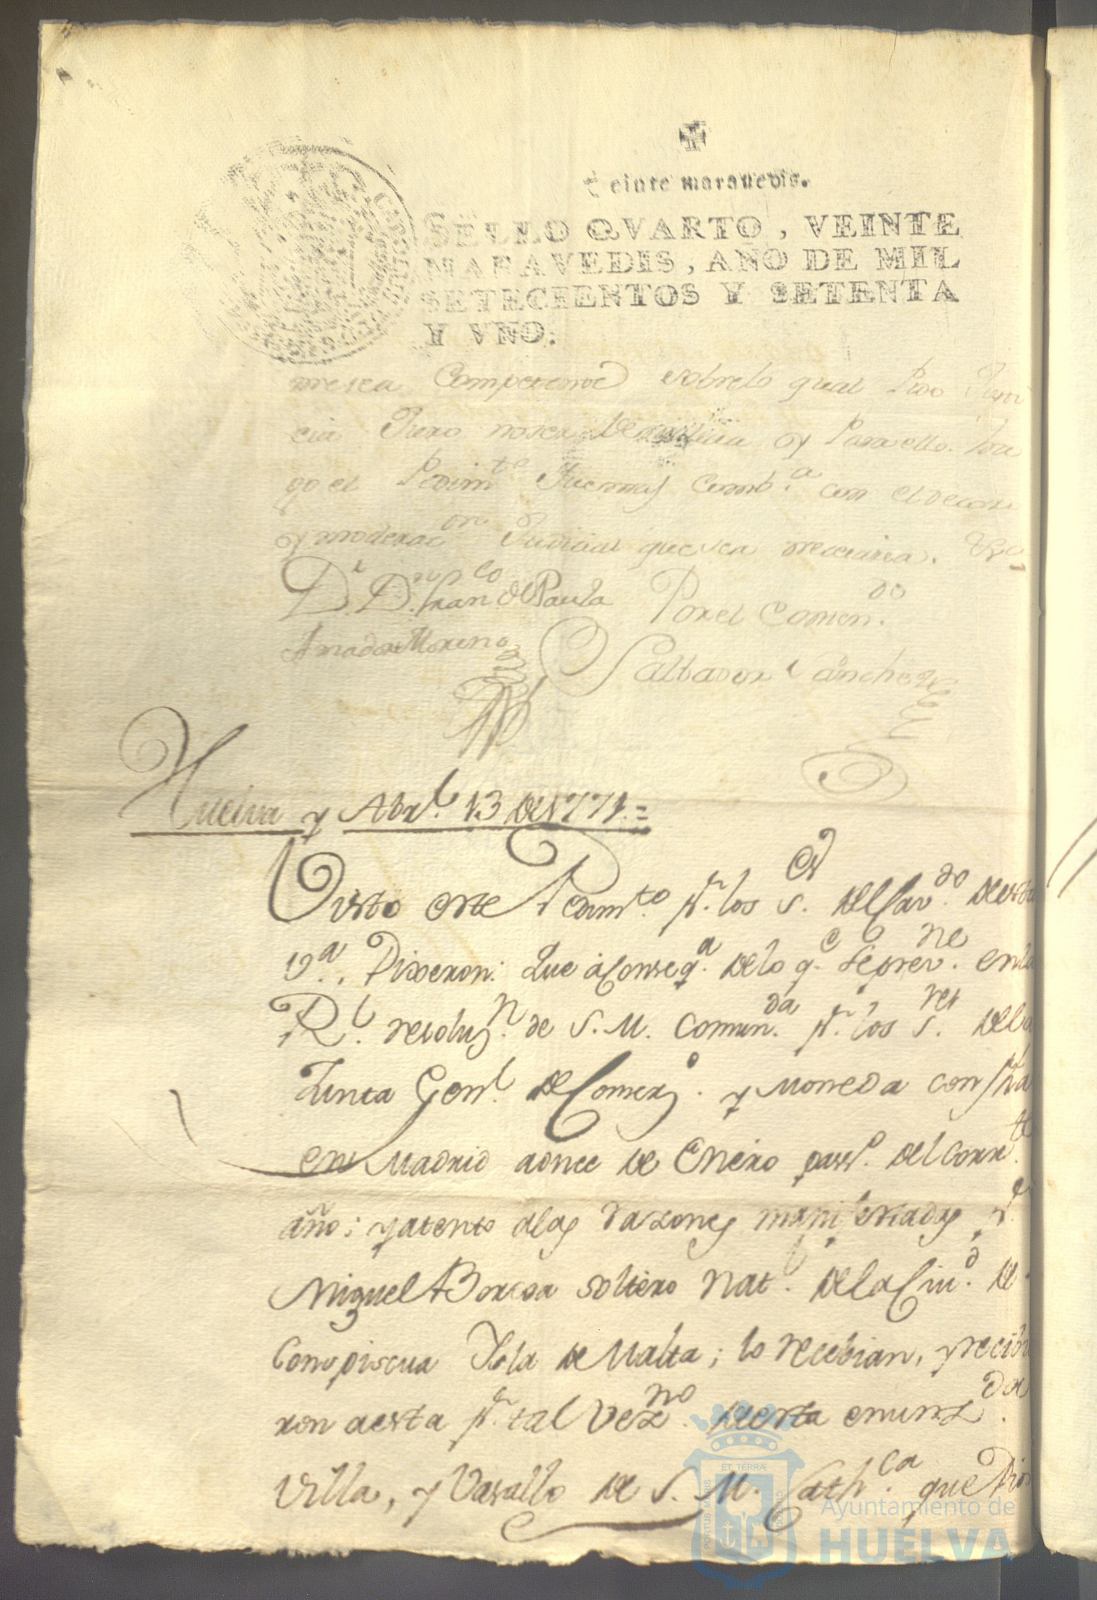 Veinte maravedis.
SELLO QVARTO, VEINTE
MARAVEDIS, AÑO DE MIL
SETECIENTOS Y SETENTA
Y VNO.
mesea Competente sobrelo qual Pido Justi
cia Juro nosea de malicia y Para ello ha
go el Pedim.to Juemas comb.a con el decoro
y moderac.on Judicial que sea necesaria.
D.r D.n Fran.co de Paula Por el Comen.do
Amador Moreno
Salbador Sanchez
Huelva y Abr.l 13 de 1771.=
Visto este Pedim.to p.r los S.es del Cav.do de esta
V.a, Dixeron: Que à conseq.a de lo q.e se prev.ne en la
R.l resoluz.n de S. M. comun.da p.r los S.res de la
Junta Gen.l de Comerz.o y Moneda con fha
en Madrid a once de Enero pass.o del corr.te
año; y atento a las razones manifestadas p.r
Miguel Borda soltero nat.l de la Ciu.d de
Conspiscua Ysla de Malta; lo recebian, y recibi
ron a esta p.r tal vez.no de esta enunz.da
Villa, y Vasallo de S. M. Cath.ca que Dios
ET TERRÆ
Ayuntamiento de
HUELVA